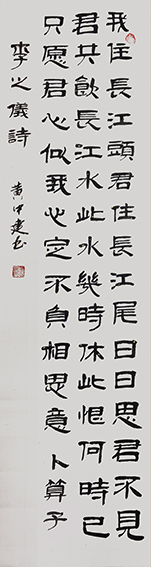 我住長江頭君住長江尾日日思君不見
君共飲長江水此水幾時休此恨何時已
只愿君心似我心定不負相思意卜算子
李之儀詩
黄中建书